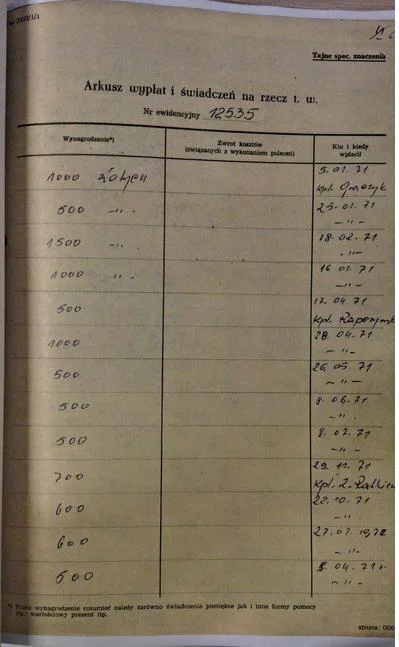 Tajne spec. znaczenia
Arkusz wypłat i świadczeń na rzecz t. w.
Nr ewidencyjny 12535
Wynagrodzenie*)
Zwrot kosztów
(związanych z wykonaniem poleceń)
Kto i kiedy
wpłacił
1000 złotych
5.01.71
kpt.
500 -"-
25.01.71
-"-
1500 -"-
18.02.71
-"-
1000 -"-
16 01.71
-"-
500
17.04.71
kpt.
1000
28.04.71
-"-
500
26.05.71
-"-
500
8.06.71
-"-
500
8.07.71
-"-
700
29.11.71
kpt. Z.
600
22.10.71
-"-
600
27.01.
-"-
500
04.71 r
-"-
*) Przez wynagrodzenie rozumieć należy zarówno świadczenia pieniężne jak i inne formy pomocy
wartościowy prezent itp.
strona: 006